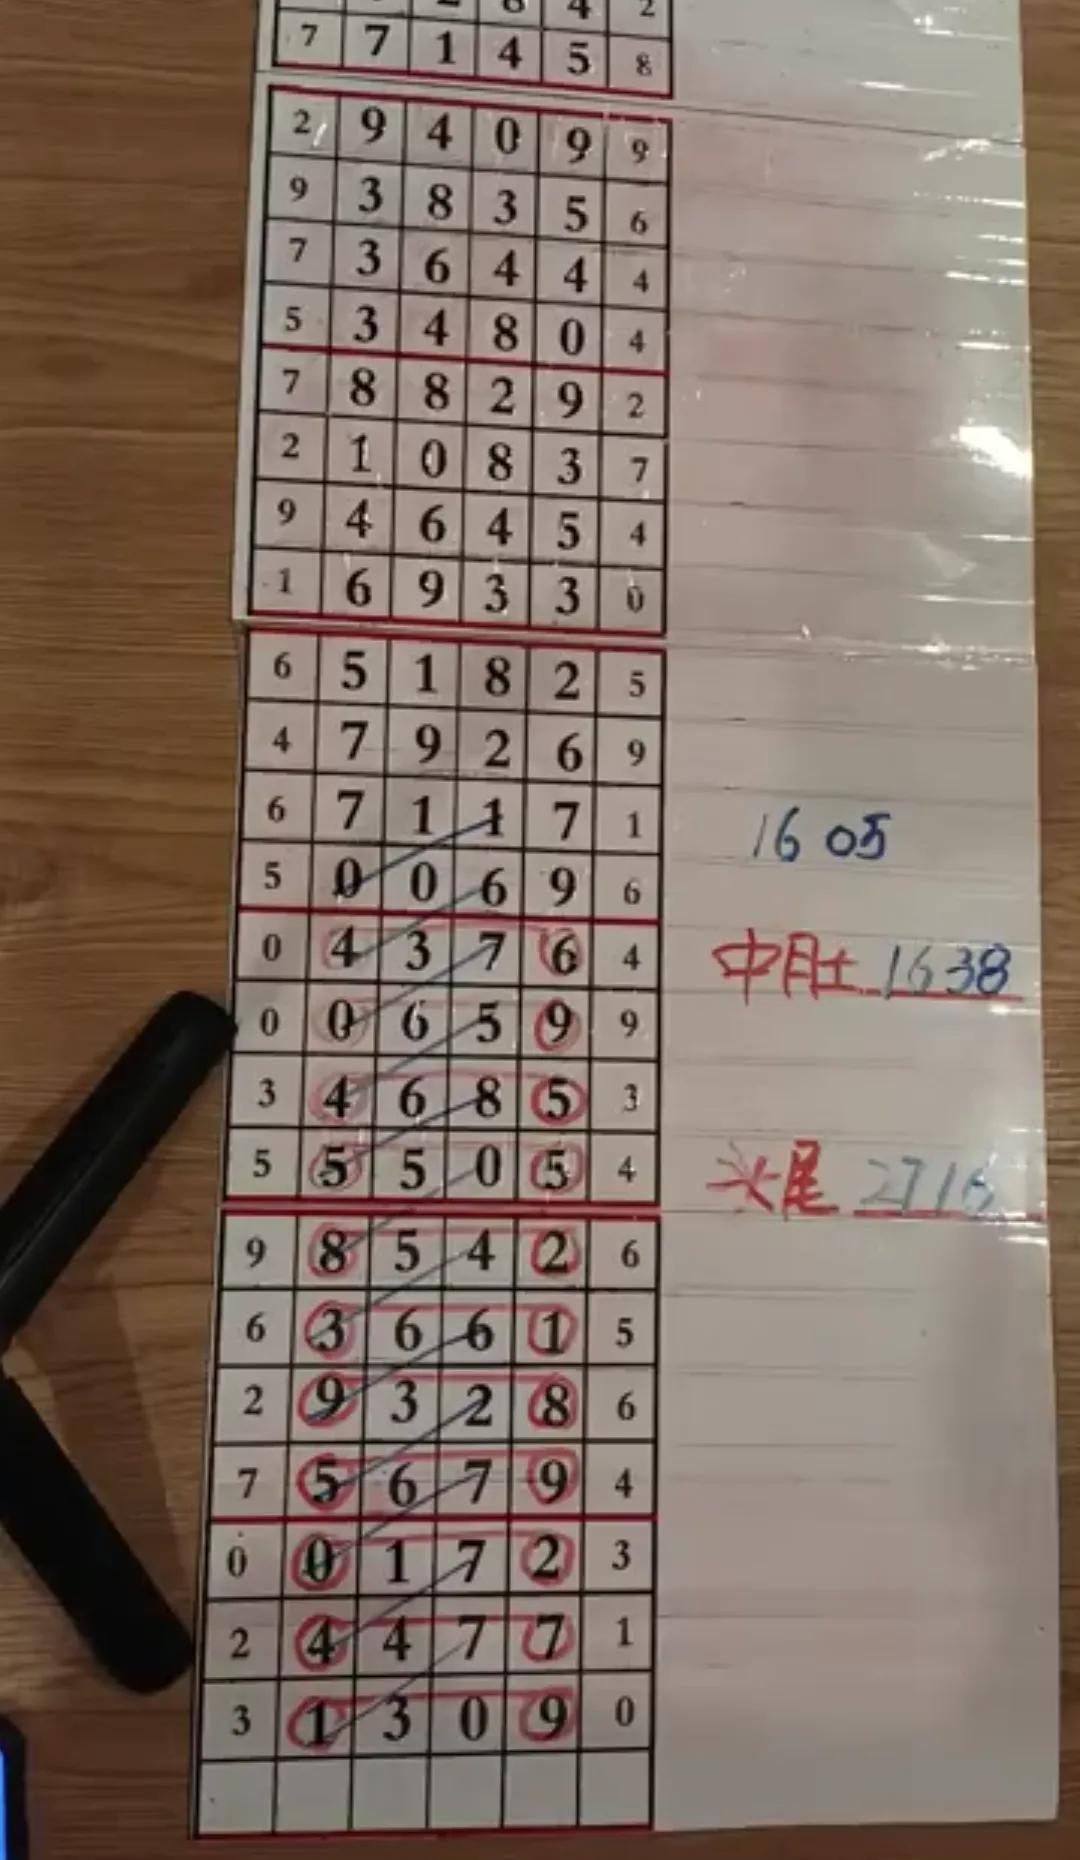 2 8 4 2
7 7 1 4 5 8
2 9 4 0 9 9
9 3 8 3 5 6
7 3 6 4 4 4
5 3 4 8 0 4
7 8 8 2 9 2
2 1 0 8 3 7
9 4 6 4 5 4
1 6 9 3 3 0
6 5 1 8 2 5
4 7 9 2 6 9
6 7 1 1 7 1
1605
5 0 0 6 9 6
0 4 3 7 6 4
中肚 1638
0 0 6 5 9 9
3 4 6 8 5 3
5 5 5 0 5 4
头尾 2716
9 8 5 4 2 6
6 3 6 6 1 5
2 9 3 2 8 6
7 5 6 7 9 4
0 0 1 7 2 3
2 4 4 7 7 1
3 1 3 0 9 0